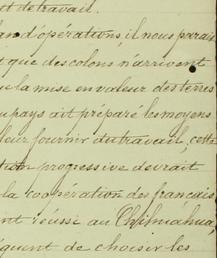 et de travail.
an d'opérations, il nous parait
que des colons n'arrivent
la mise en valeur des terres
pays ait préparé les moyens
leur fournir du travail, cette
tion progressive devrait
la coopération des français
nt réussi au Chihuahua,
quent de choisir les